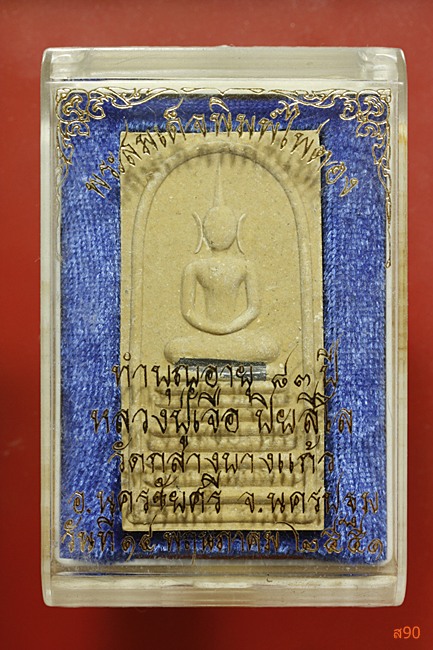 พระสมเด็จพิมพ์ไพ่ตอง
ทำบุญอายุ ๘๓ ปี
หลวงปู่เจือ ปิยสีโล
วัดกลางบางแก้ว
อ.นครชัยศรี จ.นครปฐม
วันที่ ๑๔ พฤษภาคม ๒๕๕๑
ส90